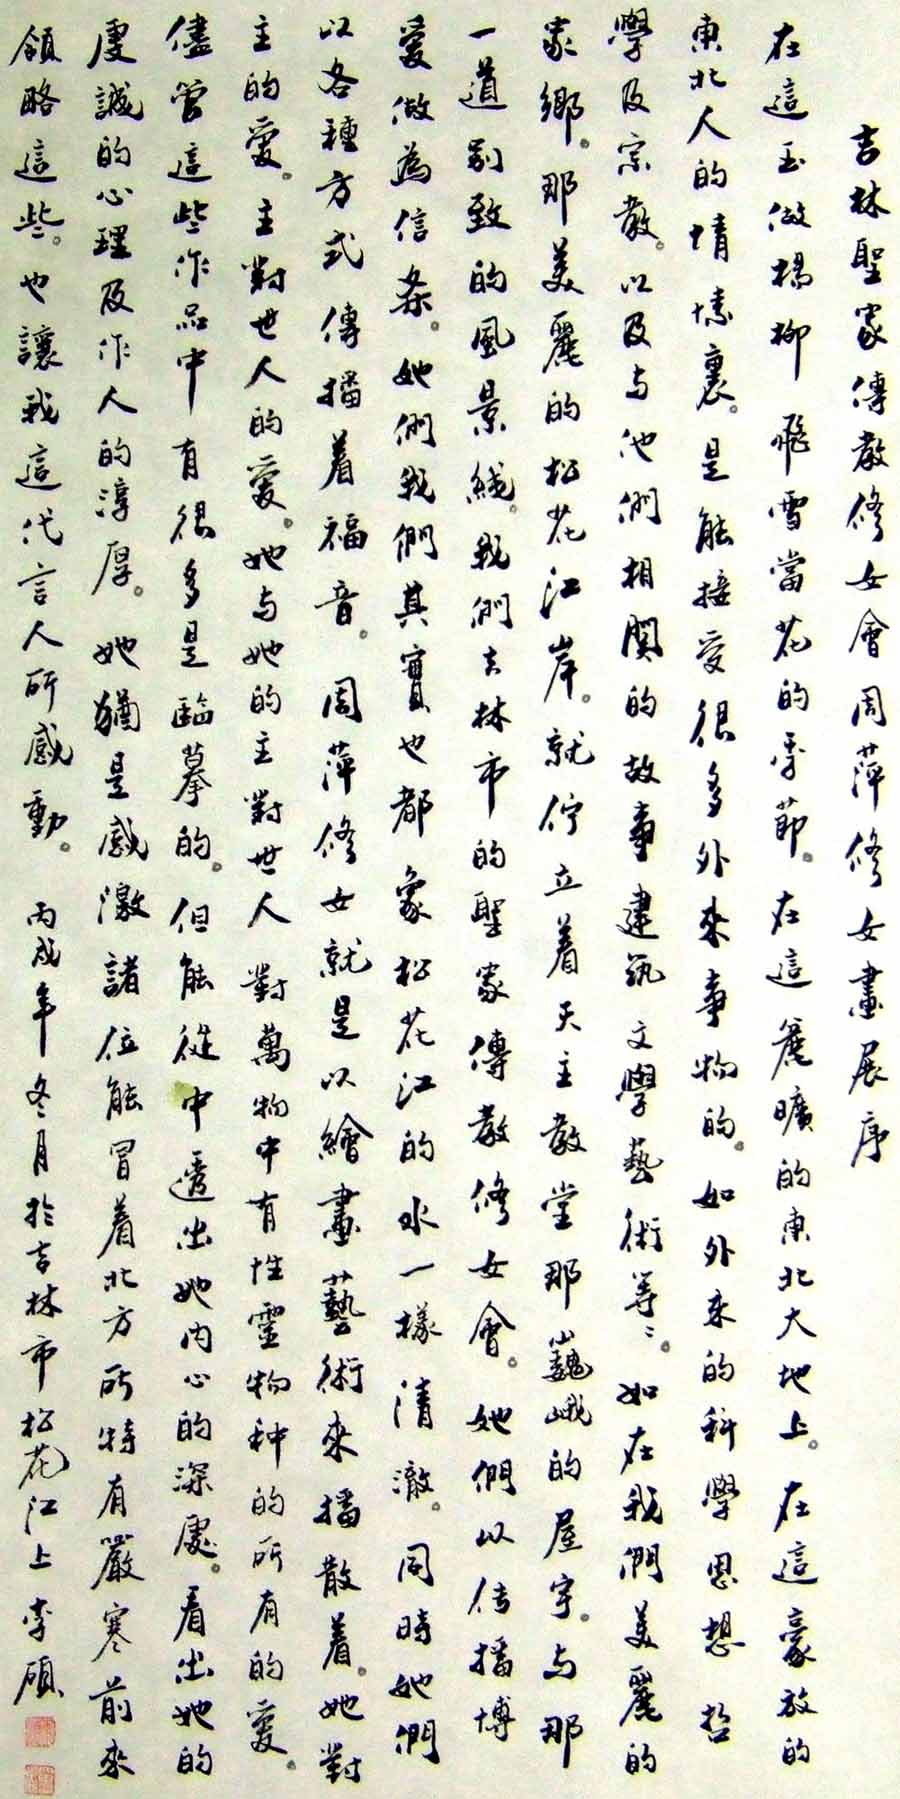 吉林聖家傳教修女會周萍修女畫展序
在這玉做楊柳飛雪當花的季節。在這蒼曠的東北大地上。在這豪放的
東北人的情愫裏。是能接受很多外來事物的。如外來的科學思想哲
學及宗教。以及与他們相関的故事建筑文學藝術等〻。如在我們美麗的
家鄉。那美麗的松花江岸。就佇立着天主教堂那巍峨的屋宇。与那
一道别致的風景綫。我們吉林市的聖家傳教修女會。她們以传播博
愛做為信条。她們我們其實也都象松花江的水一樣清澈。同時她們
以各種方式傳播着福音。周萍修女就是以繪畫藝術來播散着。她對
主的愛。主對世人的愛。她与她的主對世人對萬物中有性靈物种的所有的愛。
儘管這些作品中有很多是臨摹的。但能從中透出她内心的深處。看出她的
虔誠的心理及作人的淳厚。她猶是感激諸位能冒着北方所特有嚴寒前來
領略這些。也讓我這代言人所感動。丙戌年冬月於吉林市松花江上李碩